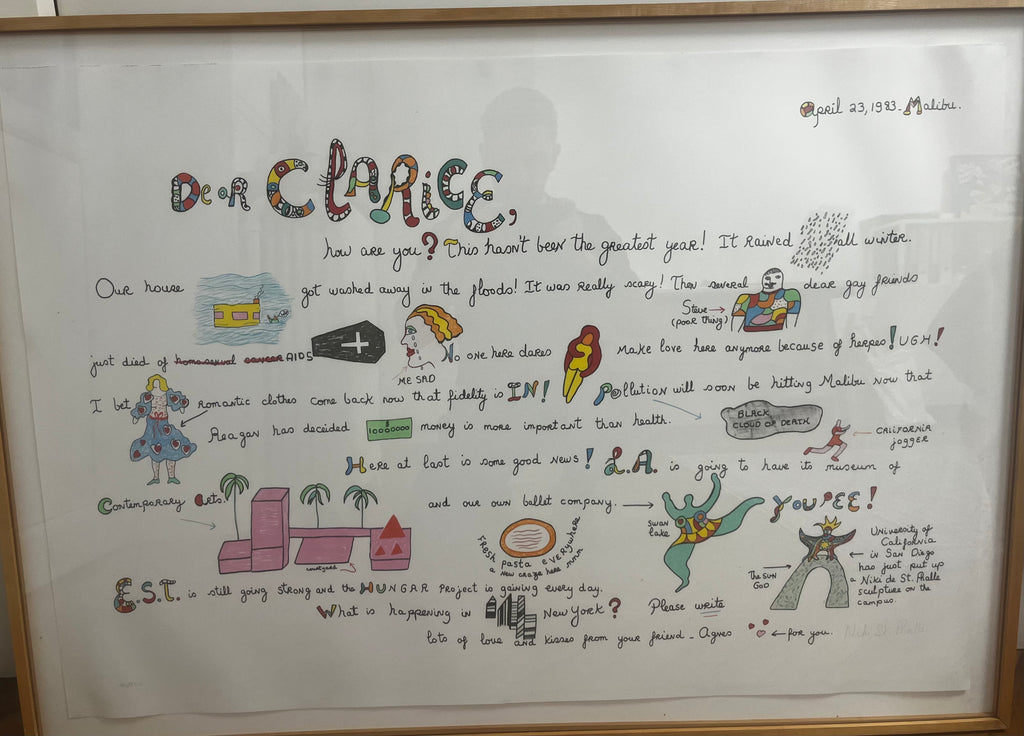 April 23, 1983 - Malibu.
Dear CLARICE,
how are you? This hasn't been the greatest year! It rained all winter.
Our house got washed away in the floods! It was really scary! Then several dear gay friends
Steve →
(poor thing)
just died of homosexual cancer AIDS No one here dares make love here anymore because of herpes! UGH!
ME SAD
I bet romantic clothes come back now that fidelity is IN! Pollution will soon be hitting Malibu now that
Reagan has decided money is more important than health.
BLACK
CLOUD OF DEATH
← CALIFORNIA
jogger
Here at last is some good news! L.A. is going to have its museum of
Contemporary Arts! and our own ballet company. → YOUPEE!
courtyard
Swan
Lake
Fresh pasta everywhere
a new craze here
The SUN
GOD
University of
California
← in San Diego
has just put up
a Niki de St. Phalle
sculpture on the
campus.
E.S.T. is still going strong and the HUNGAR Project is gaining every day.
What is happening in New York? Please write
lots of love and kisses from your friend - Agnes ← for you. Niki St. Phalle